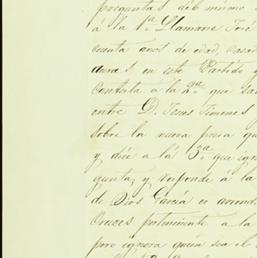 preguntas del mismo
á la 1ª. Llamarse José
cuenta años de edad, casad
en este Partido y
Contesta á la 2ª. que
entre D. Jesus Jimenes
sobre la nueva presa que
y, dice á la 3ª. que igno
gunta; y responde á la
de Dios García en arrend
Cruces perteneciente á la
pero ignora quien sea el